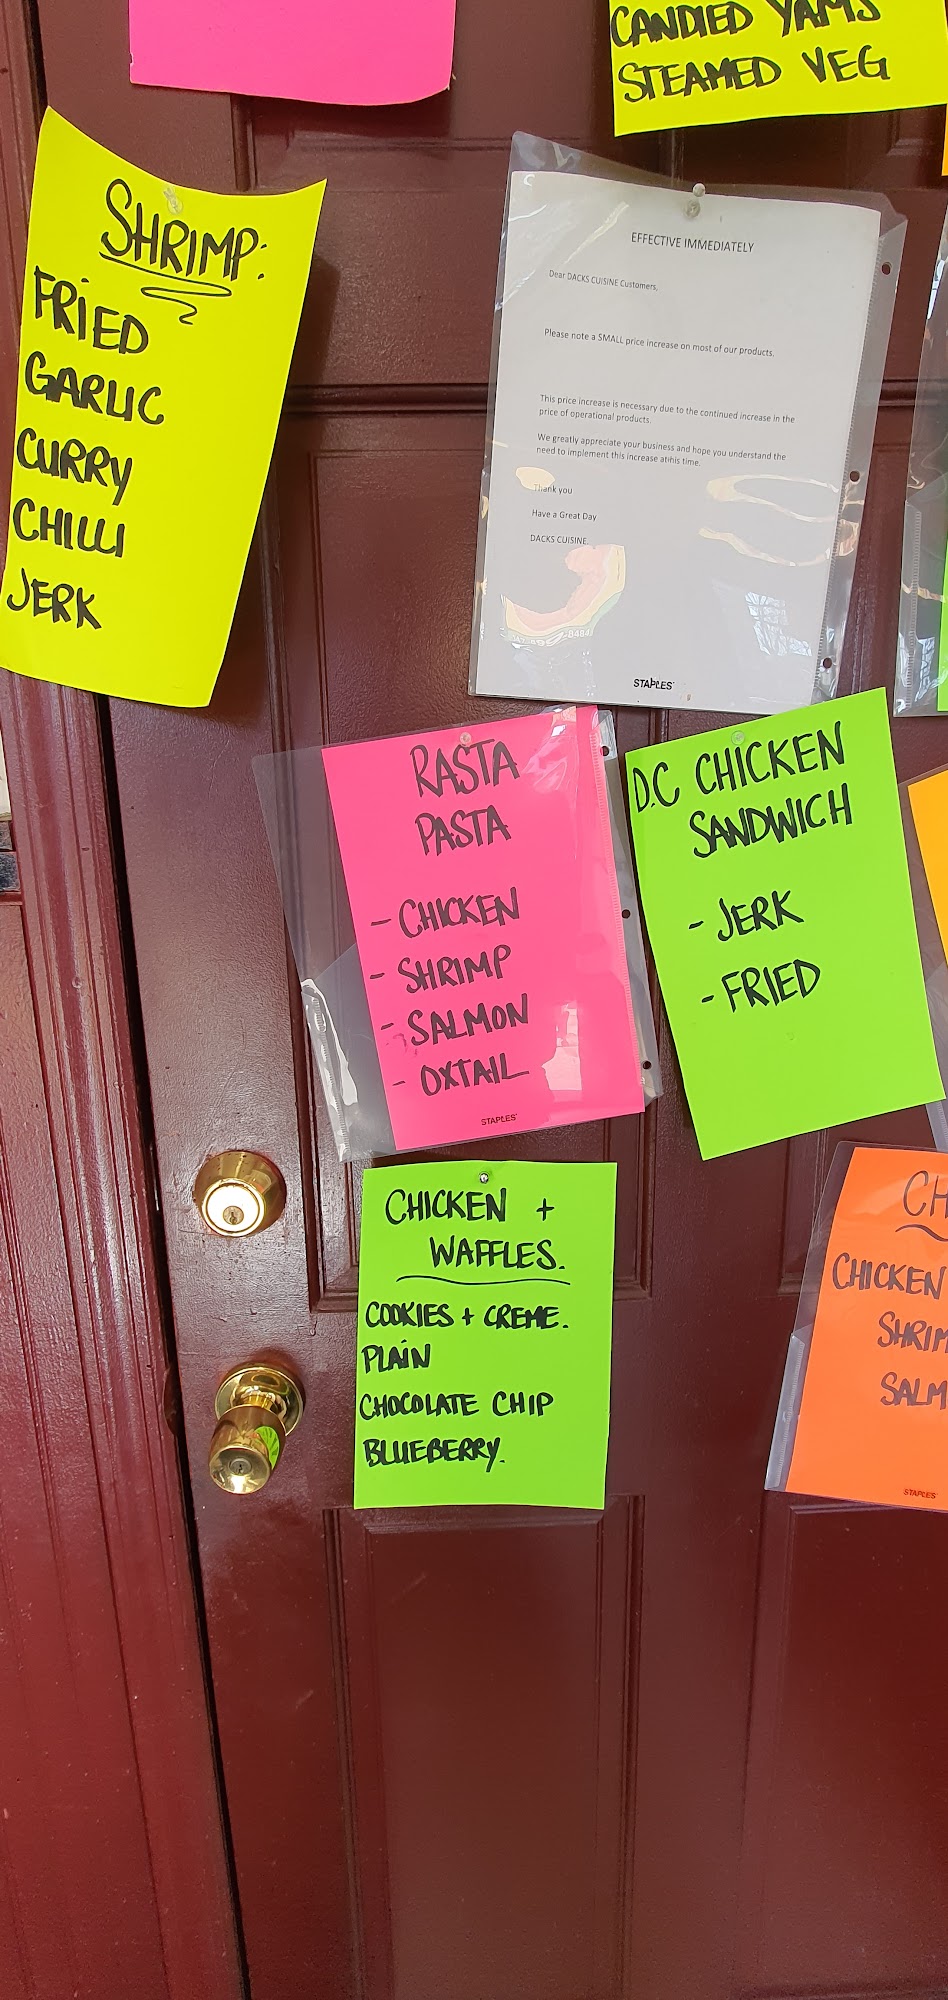 CANDIED YAMS
STEAMED VEG
SHRIMP:
FRIED
GARLIC
CURRY
CHILLI
JERK
EFFECTIVE IMMEDIATELY
Dear DACKS CUISINE Customers,
Please note a SMALL price increase on most of our products.
This price increase is necessary due to the continued increase in the
price of operational products.
We greatly appreciate your business and hope you understand the
need to implement this increase at this time.
Thank you
Have a Great Day
DACKS CUISINE.
STAPLES
RASTA
PASTA
- CHICKEN
- SHRIMP
- SALMON
- OXTAIL
STAPLES
D.C CHICKEN
SANDWICH
- JERK
- FRIED
CHICKEN +
WAFFLES.
COOKIES + CREME.
PLAIN
CHOCOLATE CHIP
BLUEBERRY.
CH
CHICKEN
SHRIM
SALM
STAPLES